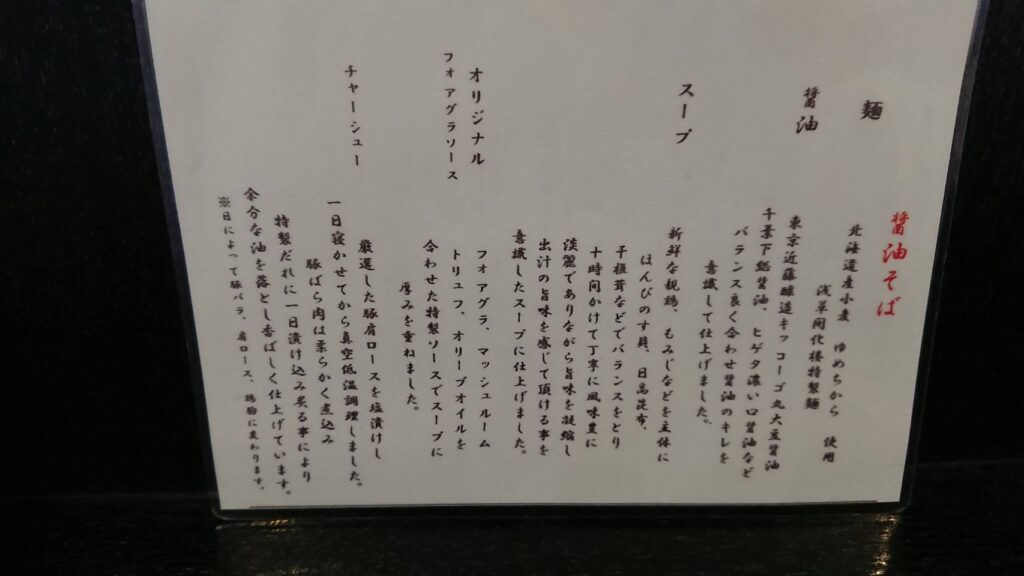 醤油そば
麺
北海道産小麦 ゆめちから 使用
浅草開化楼特製麺
醤油
東京近藤醸造キッコーゴ丸大豆醤油
千葉下総醤油、ヒゲタ濃い口醤油など
バランス良く合わせ醤油のキレを
意識して仕上げました。
スープ
新鮮な親鶏、もみじなどを主体に
ほんびのす貝、日高昆布、
干椎茸などでバランスをとり
十時間かけて丁寧に風味豊に
淡麗でありながら旨味を凝縮し
出汁の旨味を感じて頂ける事を
意識したスープに仕上げました。
オリジナル
フォアグラソース
フォアグラ、マッシュルーム
トリュフ、オリーブオイルを
合わせた特製ソースでスープに
厚みを重ねました。
チャーシュー
厳選した豚肩ロースを塩漬けし
一日寝かせてから真空低温調理しました。
豚ばら肉は柔らかく煮込み
特製だれに一日漬け込み炙る事により
余分な油を落とし香ばしく仕上げています。
※日によって豚バラ、肩ロース、鶏胸に変わります。